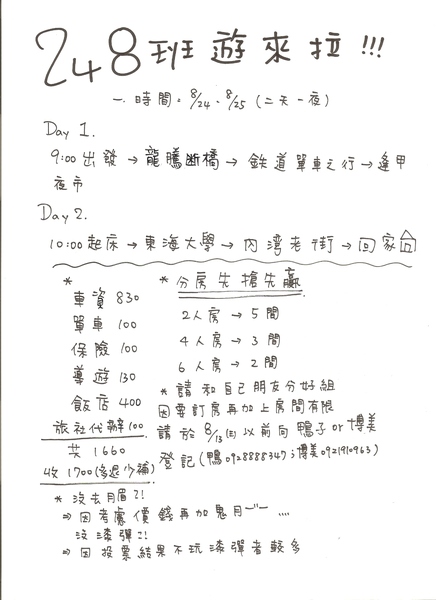 248班遊來拉!!!
一. 時間: 8/24、8/25 (二天一夜)
Day 1.
9:00 出發→龍騰断橋→鉄道單車之行→逢甲
夜市
Day 2.
10:00起床→東海大學→內湾老街→回家
*
車資 830
單車 100
保險 100
導遊 130
飯店 400
旅社代辦100
共 1660
收 1700(多退少補)
* 分房先搶先贏
2人房→5間
4人房→3間
6人房→2間
* 請和自己朋友分好組
因要訂房再加上房間有限
請於 8/13(三)以前向鴨子or博美
登記(鴨0928888347;博美0921910963)
* 沒去月眉?!
⇒因考慮價錢再加鬼月ㄧㄧ ....
沒漆彈?!
⇒因投票結果不玩漆彈者較多